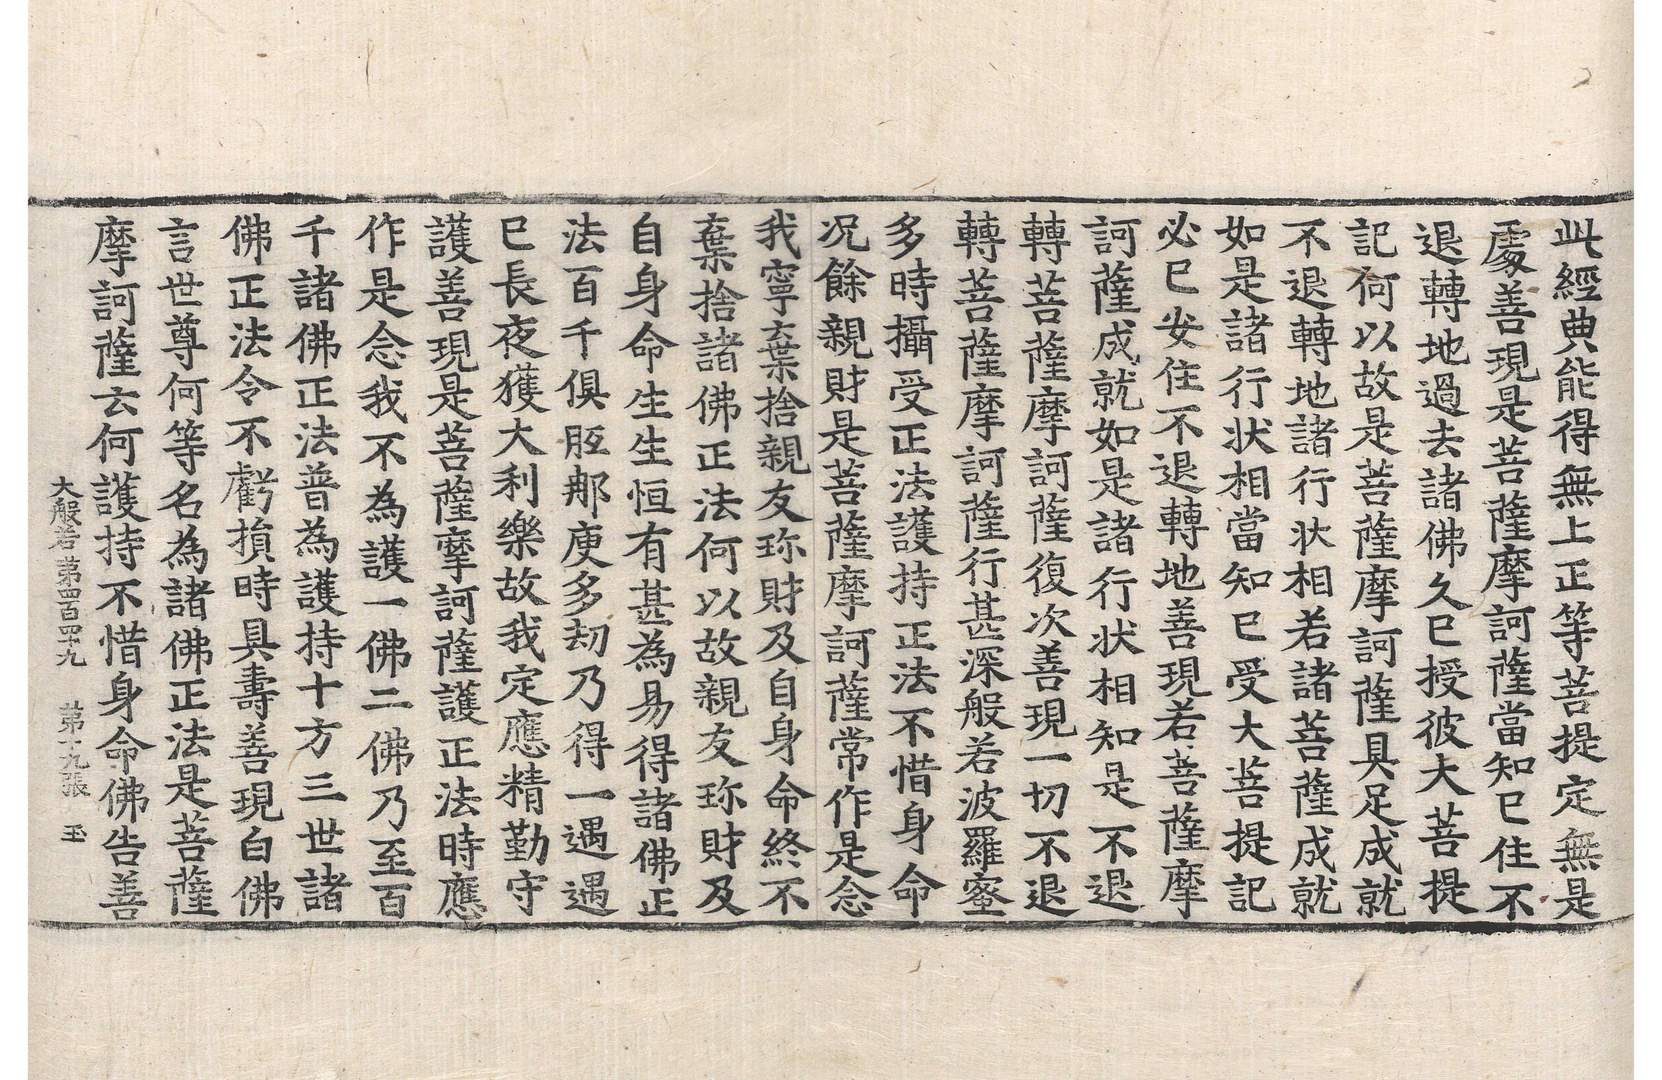 此經典能得無上正等菩提定無是
處善現是菩薩摩訶薩當知已住不
退轉地過去諸佛久已授彼大菩提
記何以故是菩薩摩訶薩具足成就
不退轉地諸行状相若諸菩薩成就
如是諸行状相當知已受大菩提記
必已安住不退轉地善現若菩薩摩
訶薩成就如是諸行状相知是不退
轉菩薩摩訶薩復次善現一切不退
轉菩薩摩訶薩行甚深般若波羅蜜
多時攝受正法護持正法不惜身命
况餘親財是菩薩摩訶薩常作是念
我寧棄捨親友珎財及自身命終不
棄捨諸佛正法何以故親友珎財及
自身命生生恒有甚為易得諸佛正
法百千俱胝那庾多劫乃得一遇遇
已長夜獲大利樂故我定應精勤守
護善現是菩薩摩訶薩護正法時應
作是念我不為護一佛二佛乃至百
千諸佛正法普為護持十方三世諸
佛正法令不虧損時具壽善現白佛
言世尊何等名為諸佛正法是菩薩
摩訶薩云何護持不惜身命佛告善
大般若第四百四十九 第十九張 玉